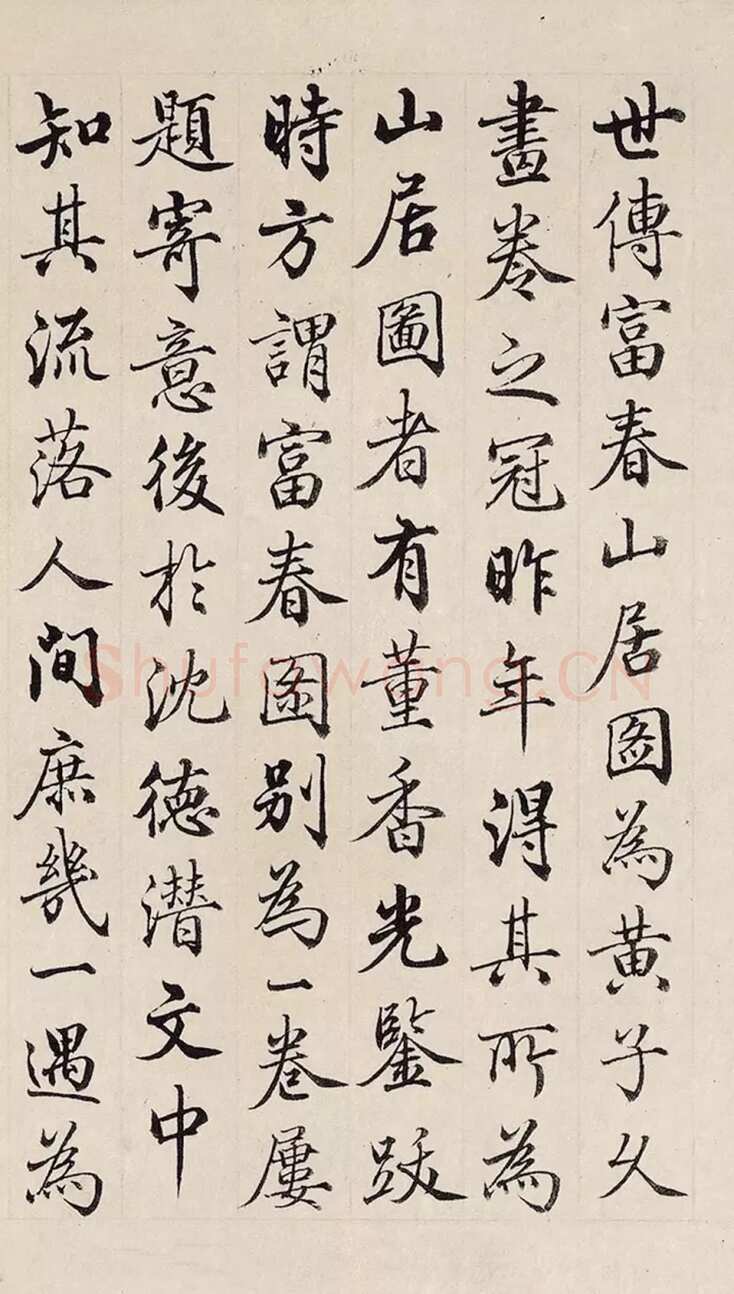 世傳富春山居圖為黃子久
畫卷之冠昨年得其所為
山居圖者有董香光鑒跋
時方謂富春圖別為一卷屢
題寄意後於沈德潛文中
知其流落人間庶幾一遇為
Shufawang.CN